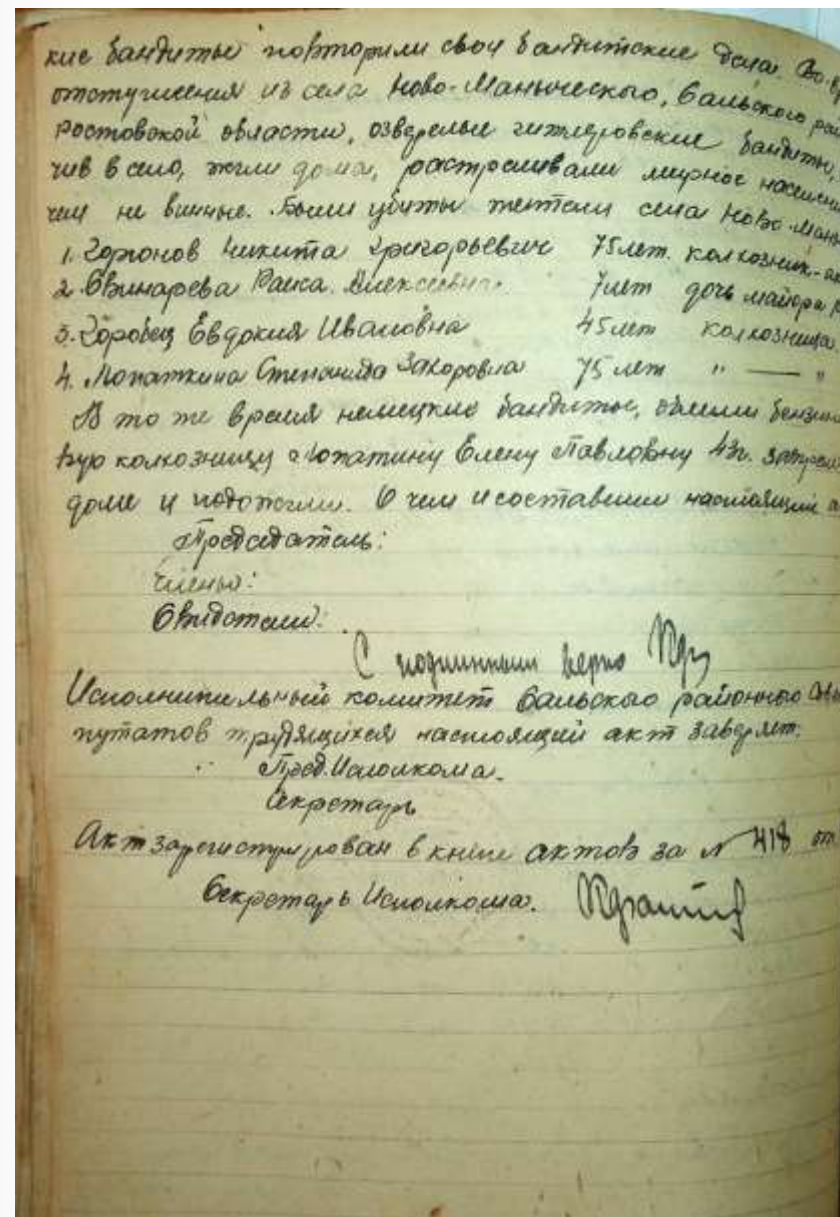 кие бандиты повторили свои бандитские дела. Во в
отступления из села Ново-Маныческого, Сальского рай
Ростовской области, озверелые гитлеровские бандиты,
чив в село, жгли дома, расстреливали мирное населени
чем не винные. Были убиты жители села Ново-Маны
1. Горюнов Никита Григорьевич 75 лет. колхозник-
2. Свинарева Раиса Алексеевна. 7 лет дочь майора
3. Коробец Евдокия Ивановна 45 лет колхозница
4. Лопаткина Степанида Захоровна 75 лет " — "
В то же время немецкие бандиты, облили бензин
вую колхозницу Елену Павловну 43г.
доме и подожгли. О чем и составили настоящий а
Председатель:
члены:
Свидетели:
С подлинным верно
Исполнительный комитет Сальского районного Сов
путатов трудящихся настоящий акт заверяет:
Пред. Исполкома.
Секретарь
Акт зарегистрирован в книге актов за № 418 от
Секретарь Исполкома.